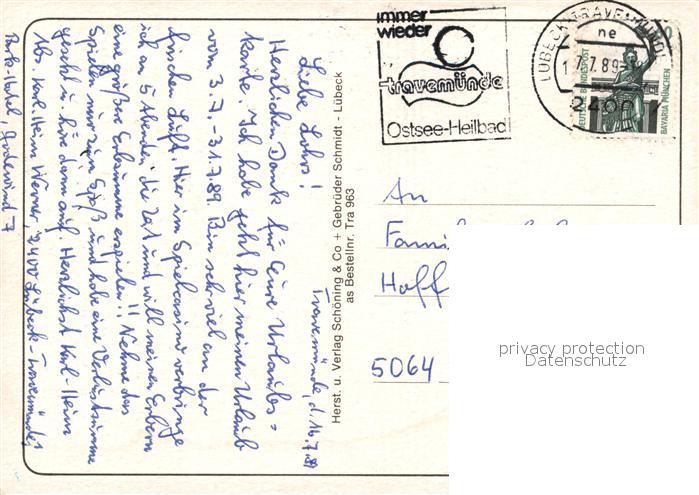 Travemünde, d. 16.7.89
Liebe Lohrs!
Herzlichen Dank für Eure Urlaubs=
karte. Ich habe jetzt hier meinen Urlaub
vom 3.7. - 31.7.89. Bin sehr viel an der
frischen Luft. Hier im Spielcasino verbringe
ich an 5 Abenden die Zeit und will meinen Erben
eine größere Erbsumme erspielen!! Nehme das
Spielen nur zum Spaß und habe eine Verlustsumme
gesetzt u. höre dann auf. Herzlichst Karl-Heinz
Abs. Karl-Heinz Werner, 2400 Lübeck-Travemünde,
Park-Hotel, Godewind 7
Herst. u. Verlag Schöning & Co + Gebrüder Schmidt - Lübeck
as Bestellnr. Tra 963
immer
wieder
travemünde
Ostsee-Heilbad
LÜBECK-TRAVEMÜNDE
ne
17.7.89
2400
DEUTSCHE BUNDESPOST
BAVARIA MÜNCHEN
An
Fami
Hoff
5064
privacy protection
Datenschutz